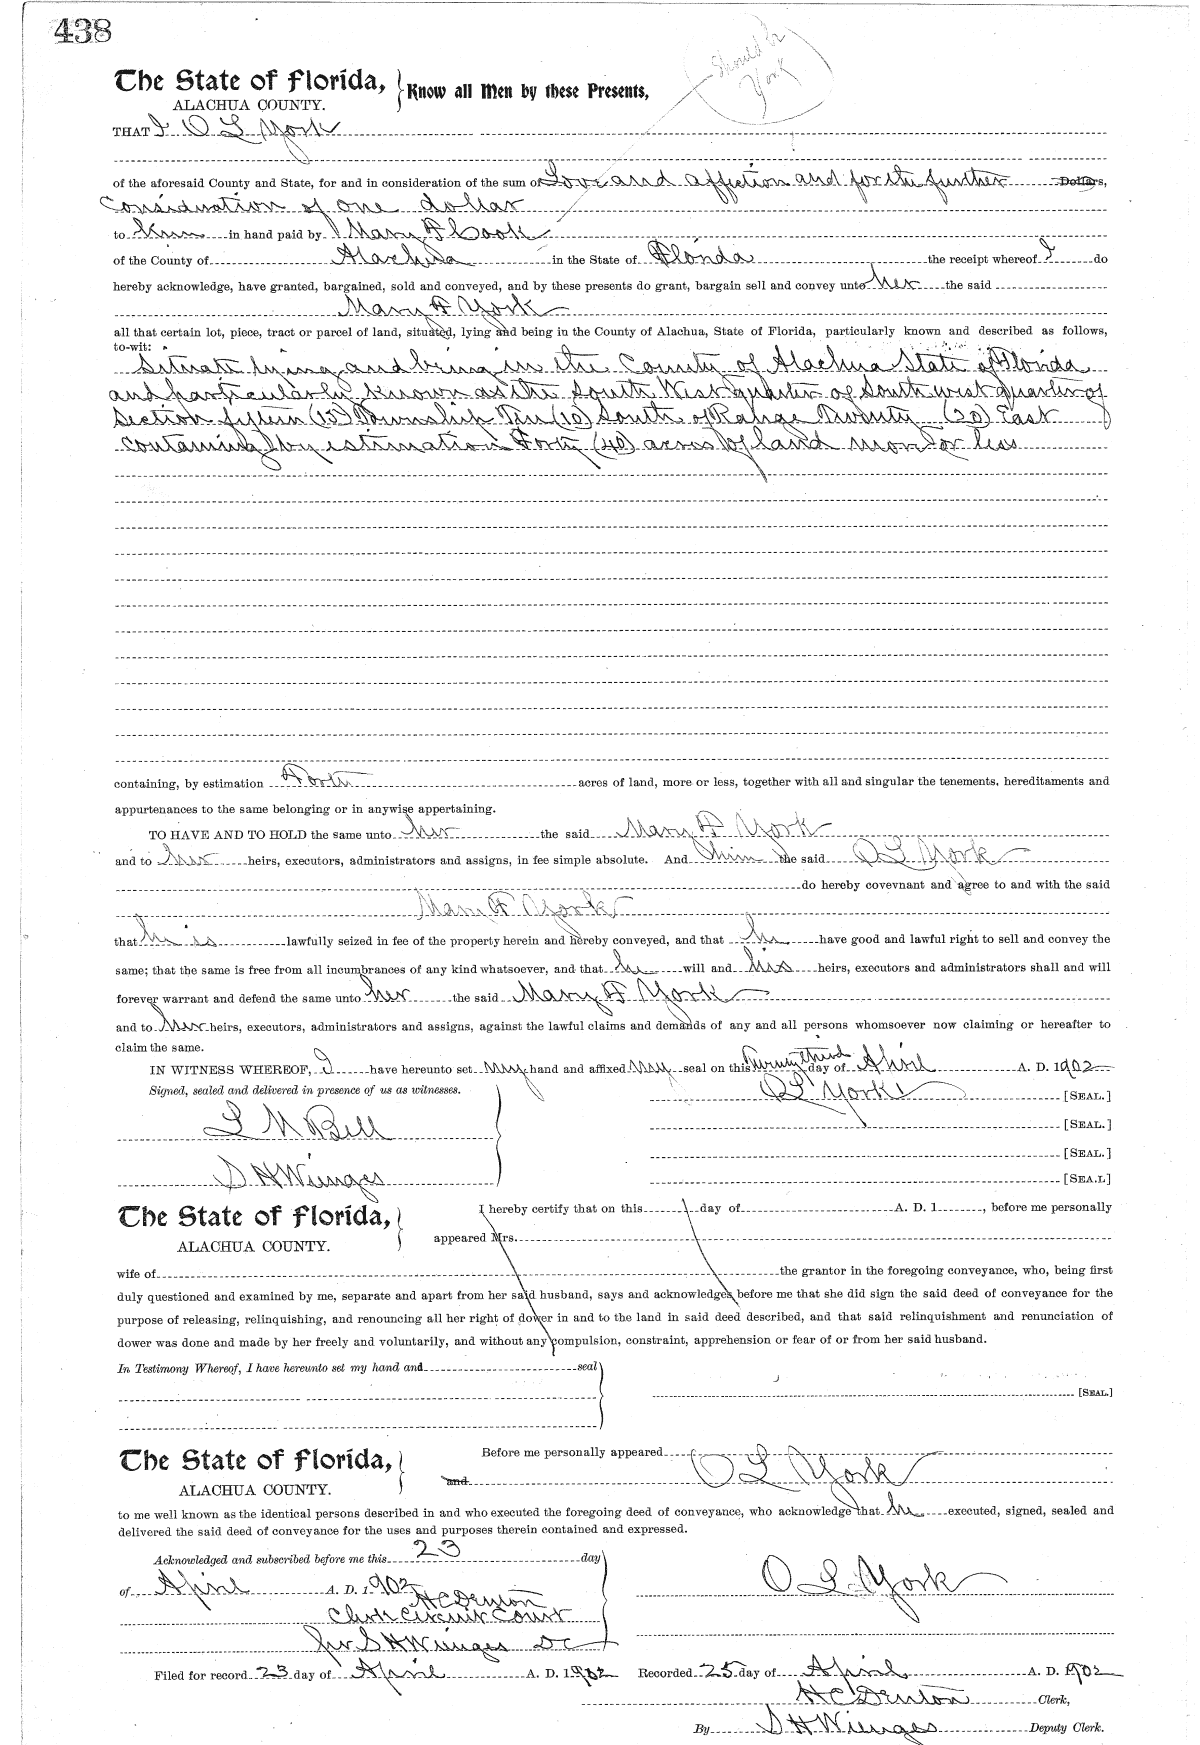 438
Should be
York
The State of Florida,
ALACHUA COUNTY.
Know all Men by these Presents,
THAT I O L York
of the aforesaid County and State, for and in consideration of the sum of Love and affection and for the further Dollars,
Consideration of one dollar
to him in hand paid by Mary F Cook
of the County of Alachua in the State of Florida the receipt whereof I do
hereby acknowledge, have granted, bargained, sold and conveyed, and by these presents do grant, bargain sell and convey unto her the said
Mary F York
all that certain lot, piece, tract or parcel of land, situated, lying and being in the County of Alachua, State of Florida, particularly known and described as follows,
to-wit:
Situate lying and being in the County of Alachua State of Florida
and particularly known as the South West quarter of South west quarter of
Section fifteen (15) Township Ten (10) South of Range Twenty (20) East
containing by estimation Forty (40) acres of land more or less
containing, by estimation Forty acres of land, more or less, together with all and singular the tenements, hereditaments and
appurtenances to the same belonging or in anywise appertaining.
TO HAVE AND TO HOLD the same unto her the said Mary F York
and to her heirs, executors, administrators and assigns, in fee simple absolute. And him the said O L York
do hereby covevnant and agree to and with the said
Mary F York
that he is lawfully seized in fee of the property herein and hereby conveyed, and that he have good and lawful right to sell and convey the
same; that the same is free from all incumbrances of any kind whatsoever, and that he will and his heirs, executors and administrators shall and will
forever warrant and defend the same unto her the said Mary F York
and to her heirs, executors, administrators and assigns, against the lawful claims and demands of any and all persons whomsoever now claiming or hereafter to
claim the same.
IN WITNESS WHEREOF, I have hereunto set my hand and affixed my seal on this Twenty third day of April A. D. 1902
Signed, sealed and delivered in presence of us as witnesses.
O L York [SEAL.]
[SEAL.]
L M Bell
[SEAL.]
S H Wienges
[SEA.L]
The State of Florida,
ALACHUA COUNTY.
I hereby certify that on this day of A. D. 1 , before me personally
appeared Mrs.
wife of the grantor in the foregoing conveyance, who, being first
duly questioned and examined by me, separate and apart from her said husband, says and acknowledges before me that she did sign the said deed of conveyance for the
purpose of releasing, relinquishing, and renouncing all her right of dower in and to the land in said deed described, and that said relinquishment and renunciation of
dower was done and made by her freely and voluntarily, and without any compulsion, constraint, apprehension or fear of or from her said husband.
In Testimony Whereof, I have hereunto set my hand and seal
[SEAL.]
The State of Florida,
ALACHUA COUNTY.
Before me personally appeared
and O L York
to me well known as the identical persons described in and who executed the foregoing deed of conveyance, who acknowledge that he executed, signed, sealed and
delivered the said deed of conveyance for the uses and purposes therein contained and expressed.
Acknowledged and subscribed before me this 23 day
of April A. D. 1902
O L York
H C Denton
Clerk Circuit Court
per S H Wienges D C
Filed for record 23 day of April A. D. 1902 Recorded 25 day of April A. D. 1902
H C Denton Clerk,
By S H Wienges Deputy Clerk.